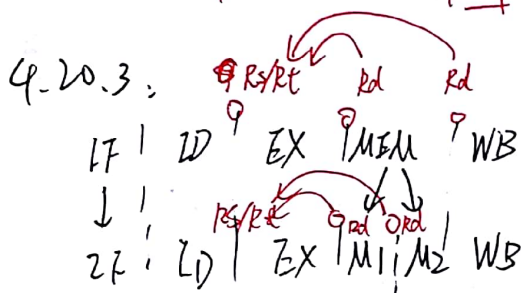 4.20.3.
Rs/Rt Rd Rd
IF ID EX MEM WB
Rs/Rt Rd Rd
IF ID EX M1 M2 WB